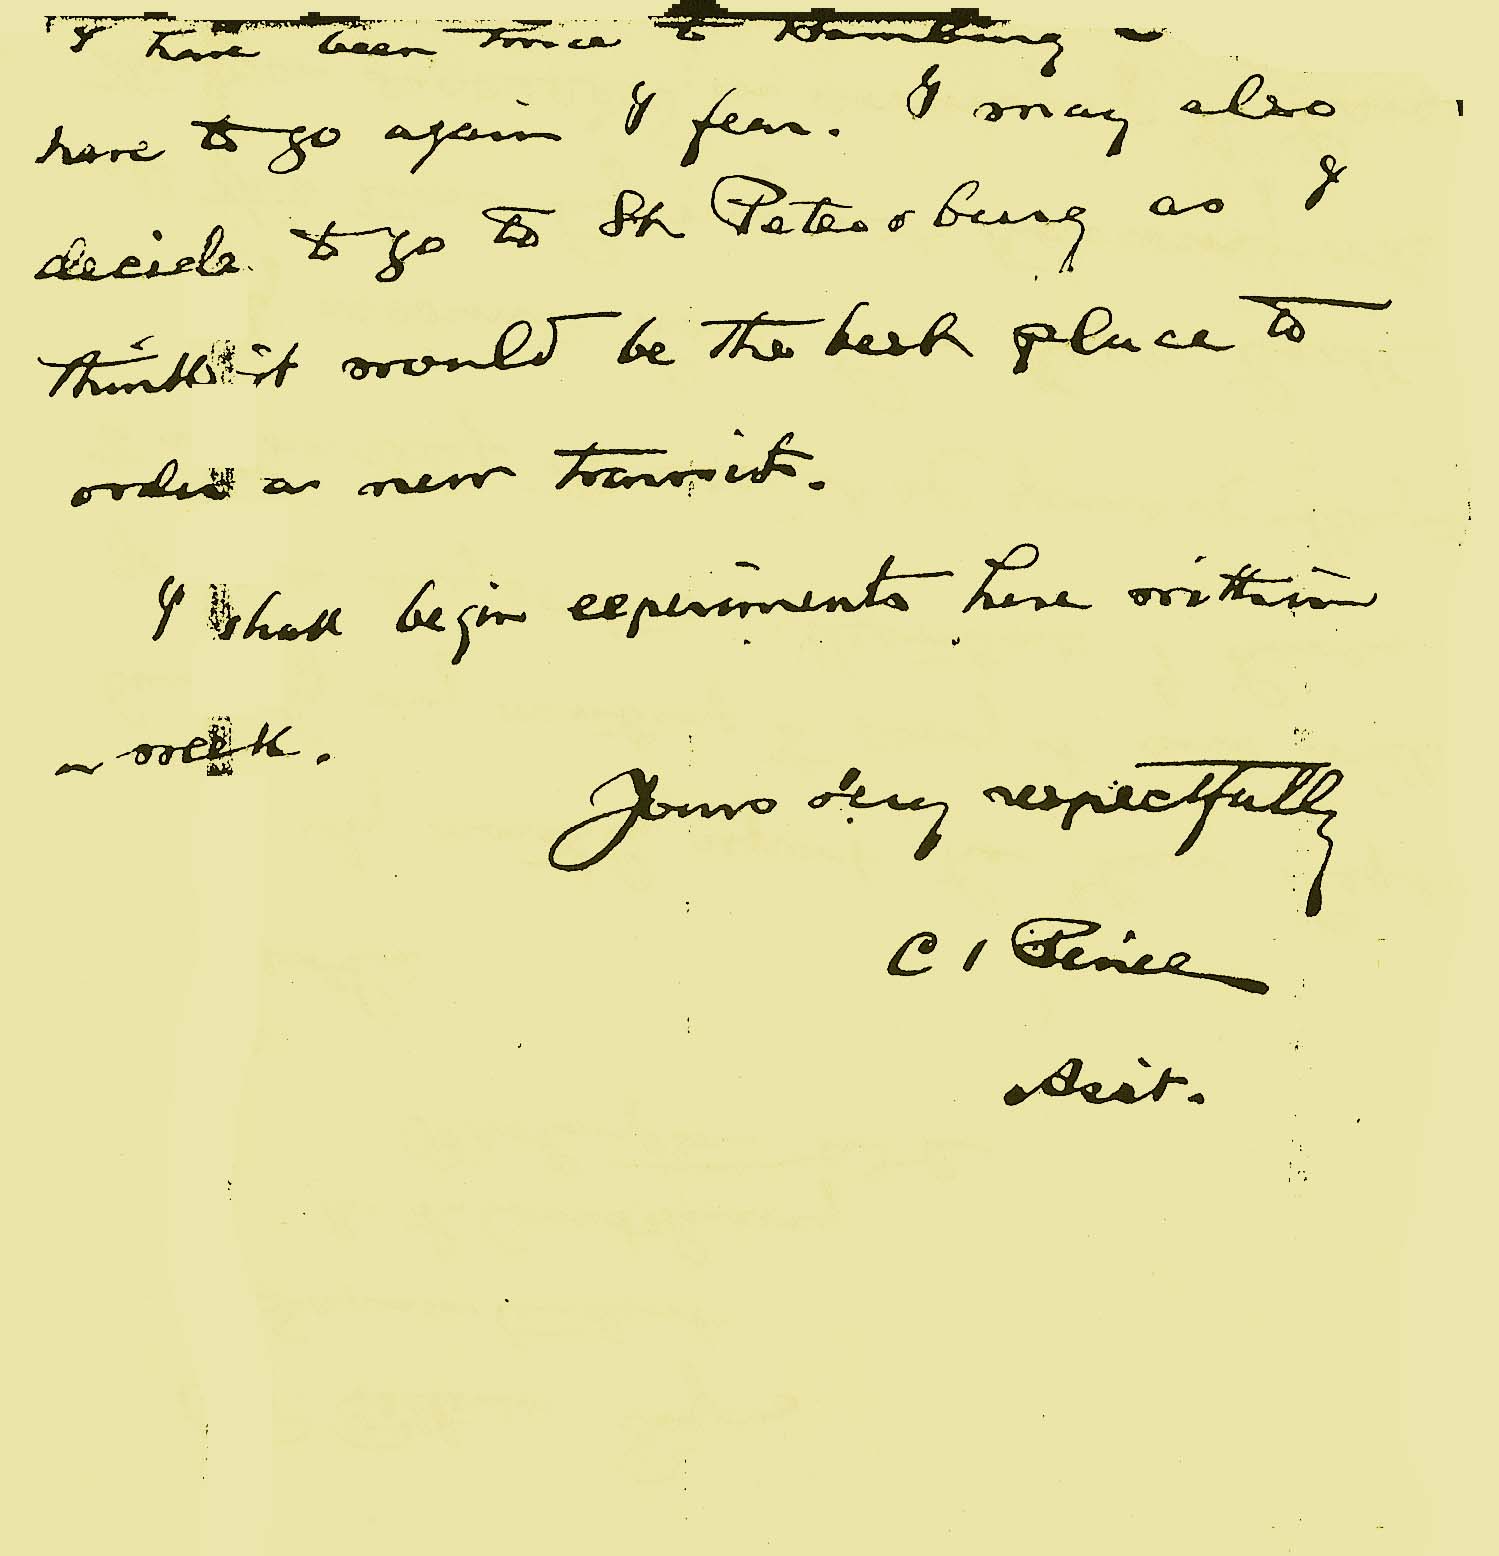 I have been twice to Hamburg ~
have to go again I fear. I may also
decide to go to St Petersburg as I
think it would be the best place to
order a new transit.
I shall begin experiments here within
a week.
Yours very respectfully
C S Peirce
Asst.